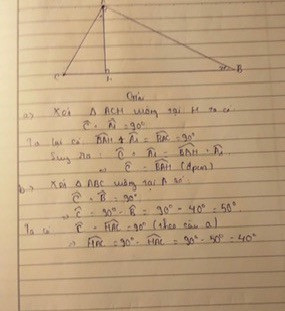 C
B
Giải
a) Xét △ ACH vuông tại H ta có
Ĉ + Â₁ = 90°
Ta lại có BAH + Â₁ = BAC = 90°
Suy ra Ĉ + Â₁ = BAH + Â₁
⇒ Ĉ = BAH (đpcm)
b) Xét △ ABC vuông tại A có
Ĉ + B̂ = 90°
⇒ Ĉ = 90° - B̂ = 90° - 40° = 50°
Ta có Ĉ + HAC = 90° (theo câu a)
⇒ HAC = 90° - HAC = 90° - 50° - 40°